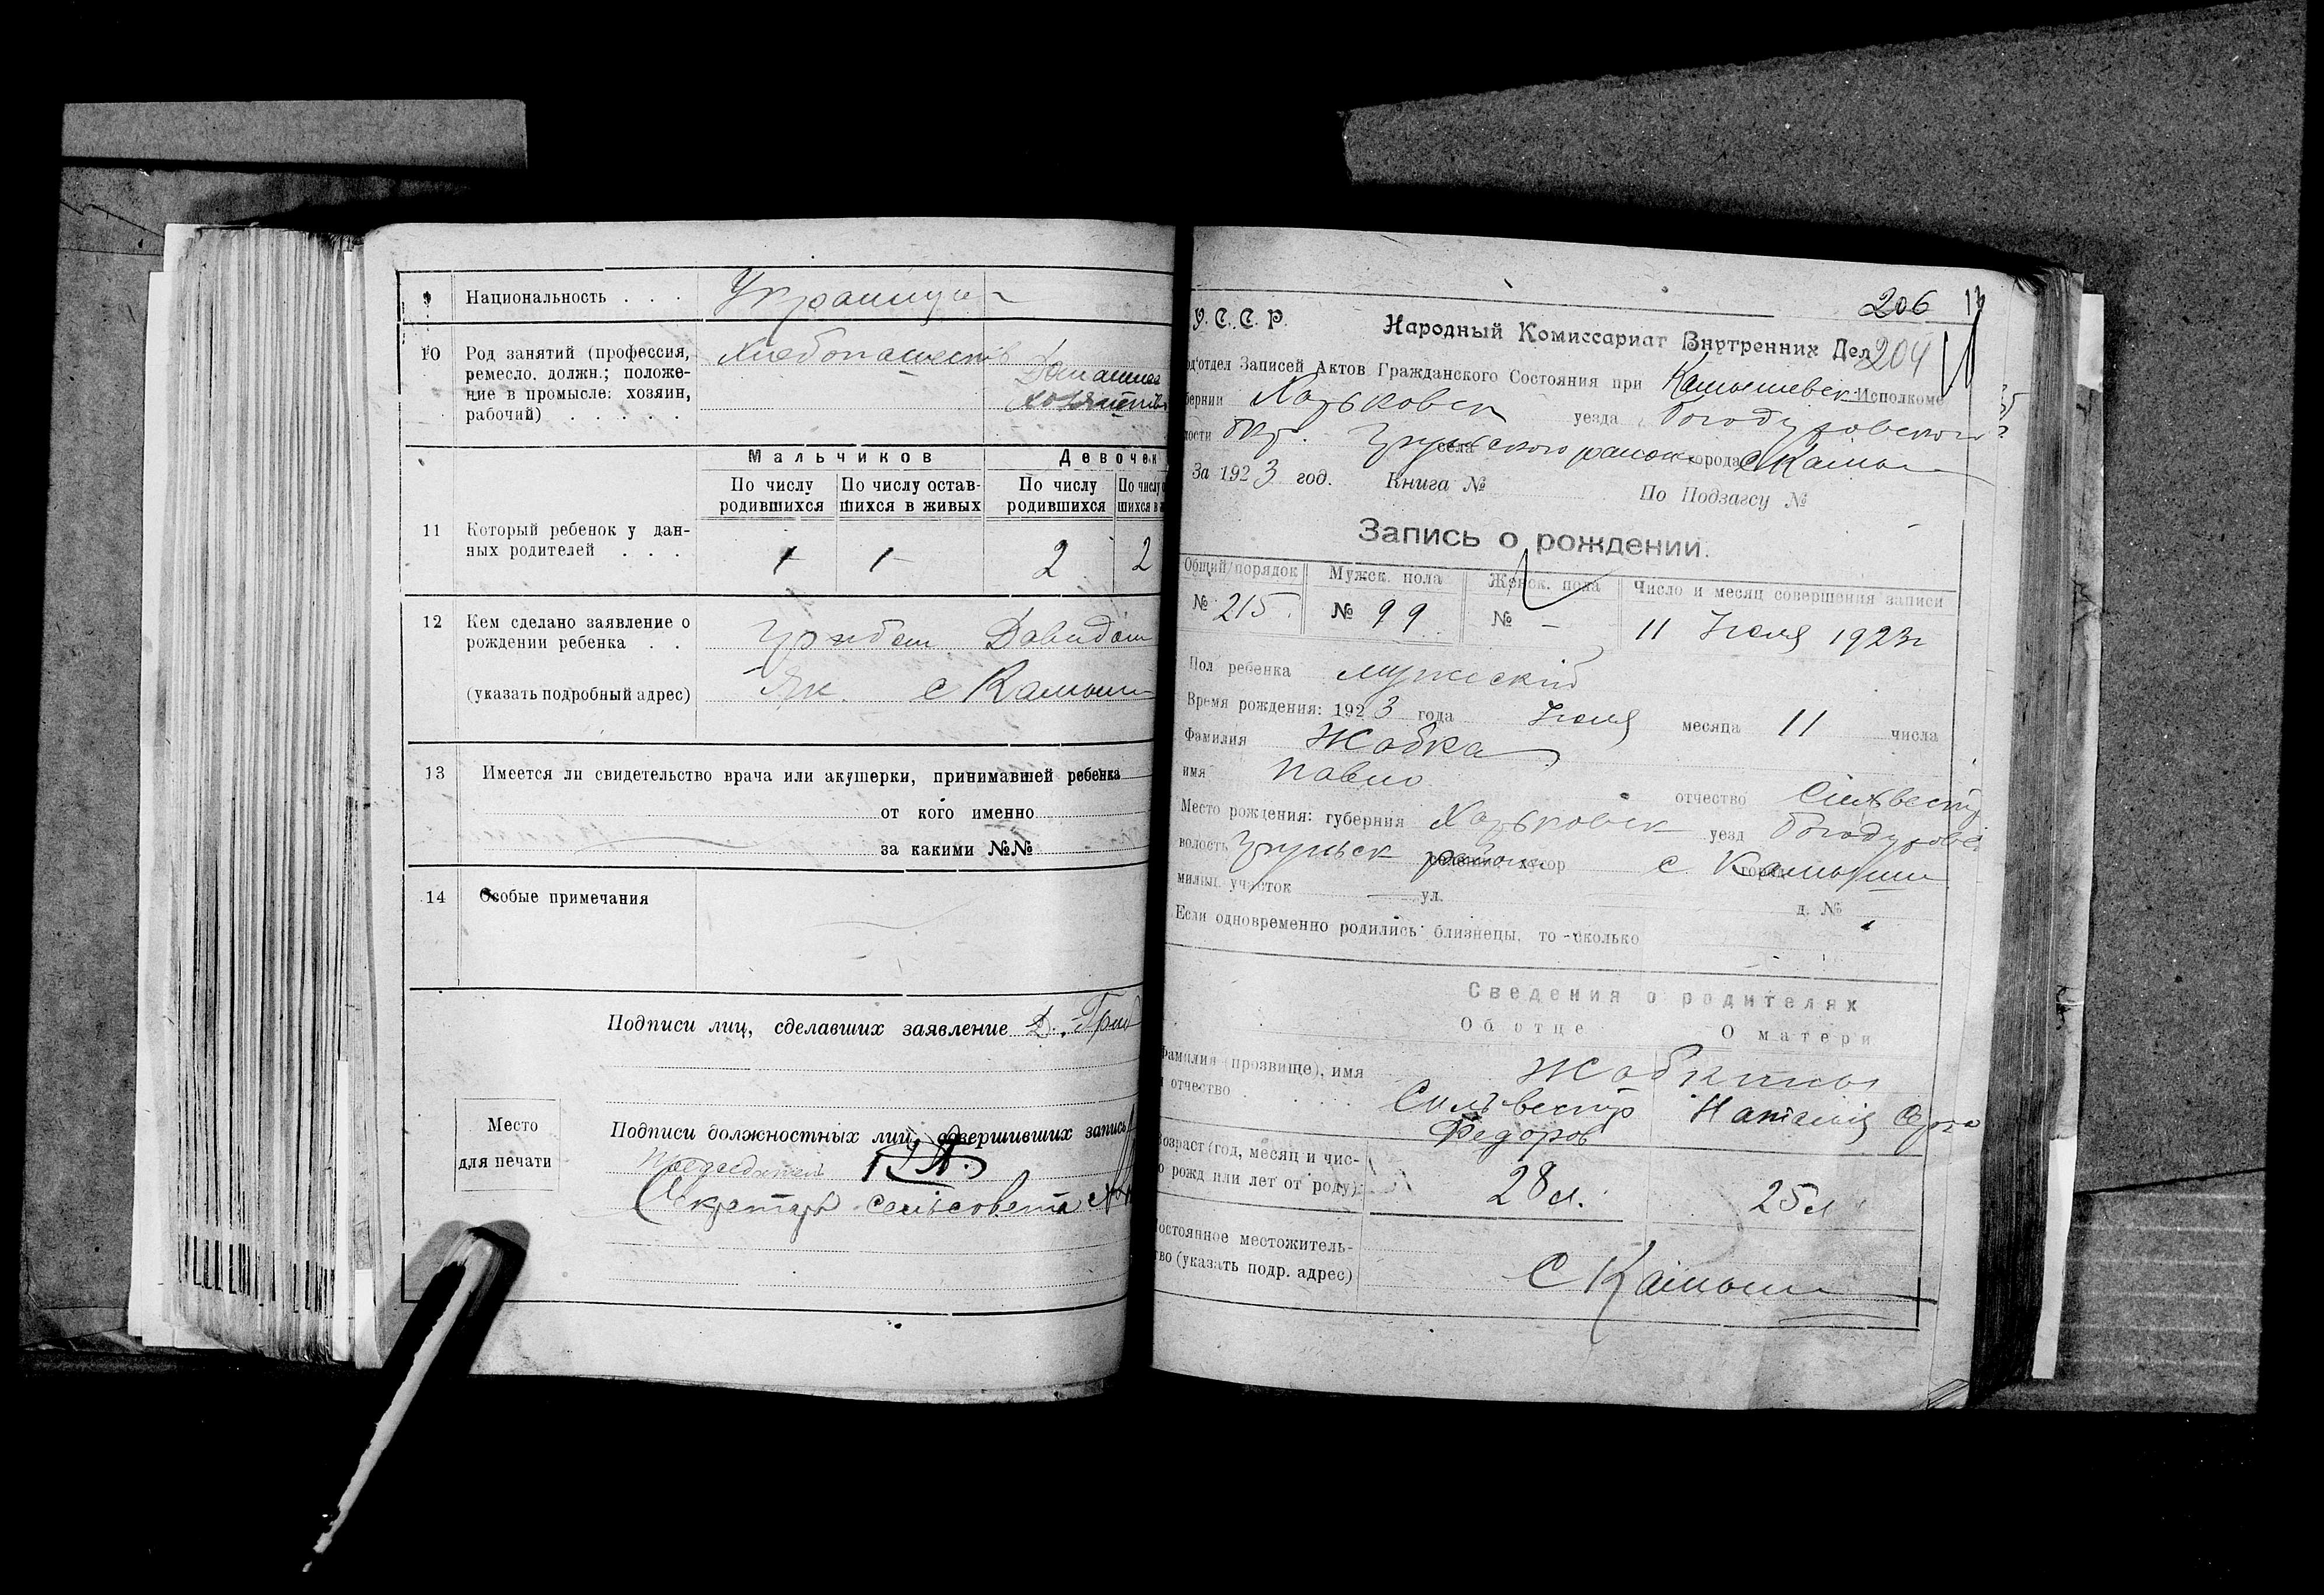 9 Национальность . . . Украинци
10 Род занятий (профессия, Хлебопашеств
ремесло, должн.; положе- Домашнее
ние в промысле: хозяин, хозяйство
рабочий) . . . . .
Мальчиков Девочек
По числу По числу остав- По числу По числу
родившихся шихся в живых родившихся шихся в
11 Который ребенок у дан-
ных родителей . . . 1 1 2 2
12 Кем сделано заявление о
рождении ребенка . . Давидом
(указать подробный адрес) Як. с Камыши
13 Имеется ли свидетельство врача или акушерки, принимавшей ребенка
от кого именно
за какими №№
14 Особые примечания
Подписи лиц, сделавших заявление Д. Грид
Место
для печати
Подписи должностных лиц, совершивших запись
Председатель
Секретарь сельсовета
206
У. С. С. Р. Народный Комиссариат Внутренних Дел 204
од'отдел Записей Актов Гражданского Состояния при Камышевск Исполкоме
бернии Харьковск уезда Богодуховского
лости окр. села района города с Камыши
За 1923 год. Книга № По Подзагсу №
Запись о рождении.
Общий порядок Мужск. пола Женск. пола Число и месяц совершения записи
№ 215. № 99 № - 11 Июля 1923г
Пол ребенка мужский
Время рождения: 1923 года Июля месяца 11 числа
Фамилия Жабка
имя Павло отчество Сильвестр
Место рождения: губерния Харьковск уезд Богодухов
волость район хутор город с. Камыши
милиц. участок ул. д. №
Если одновременно родились близнецы, то сколько
Сведения о родителях
Об отце О матери
Фамилия (прозвище), имя
и отчество
Сильвестр Наталия
Федоров
Возраст (год, месяц и чис-
о рожд или лет от роду) 28 л. 25 л
остоянное местожитель-
тво (указать подр. адрес) С Камыши